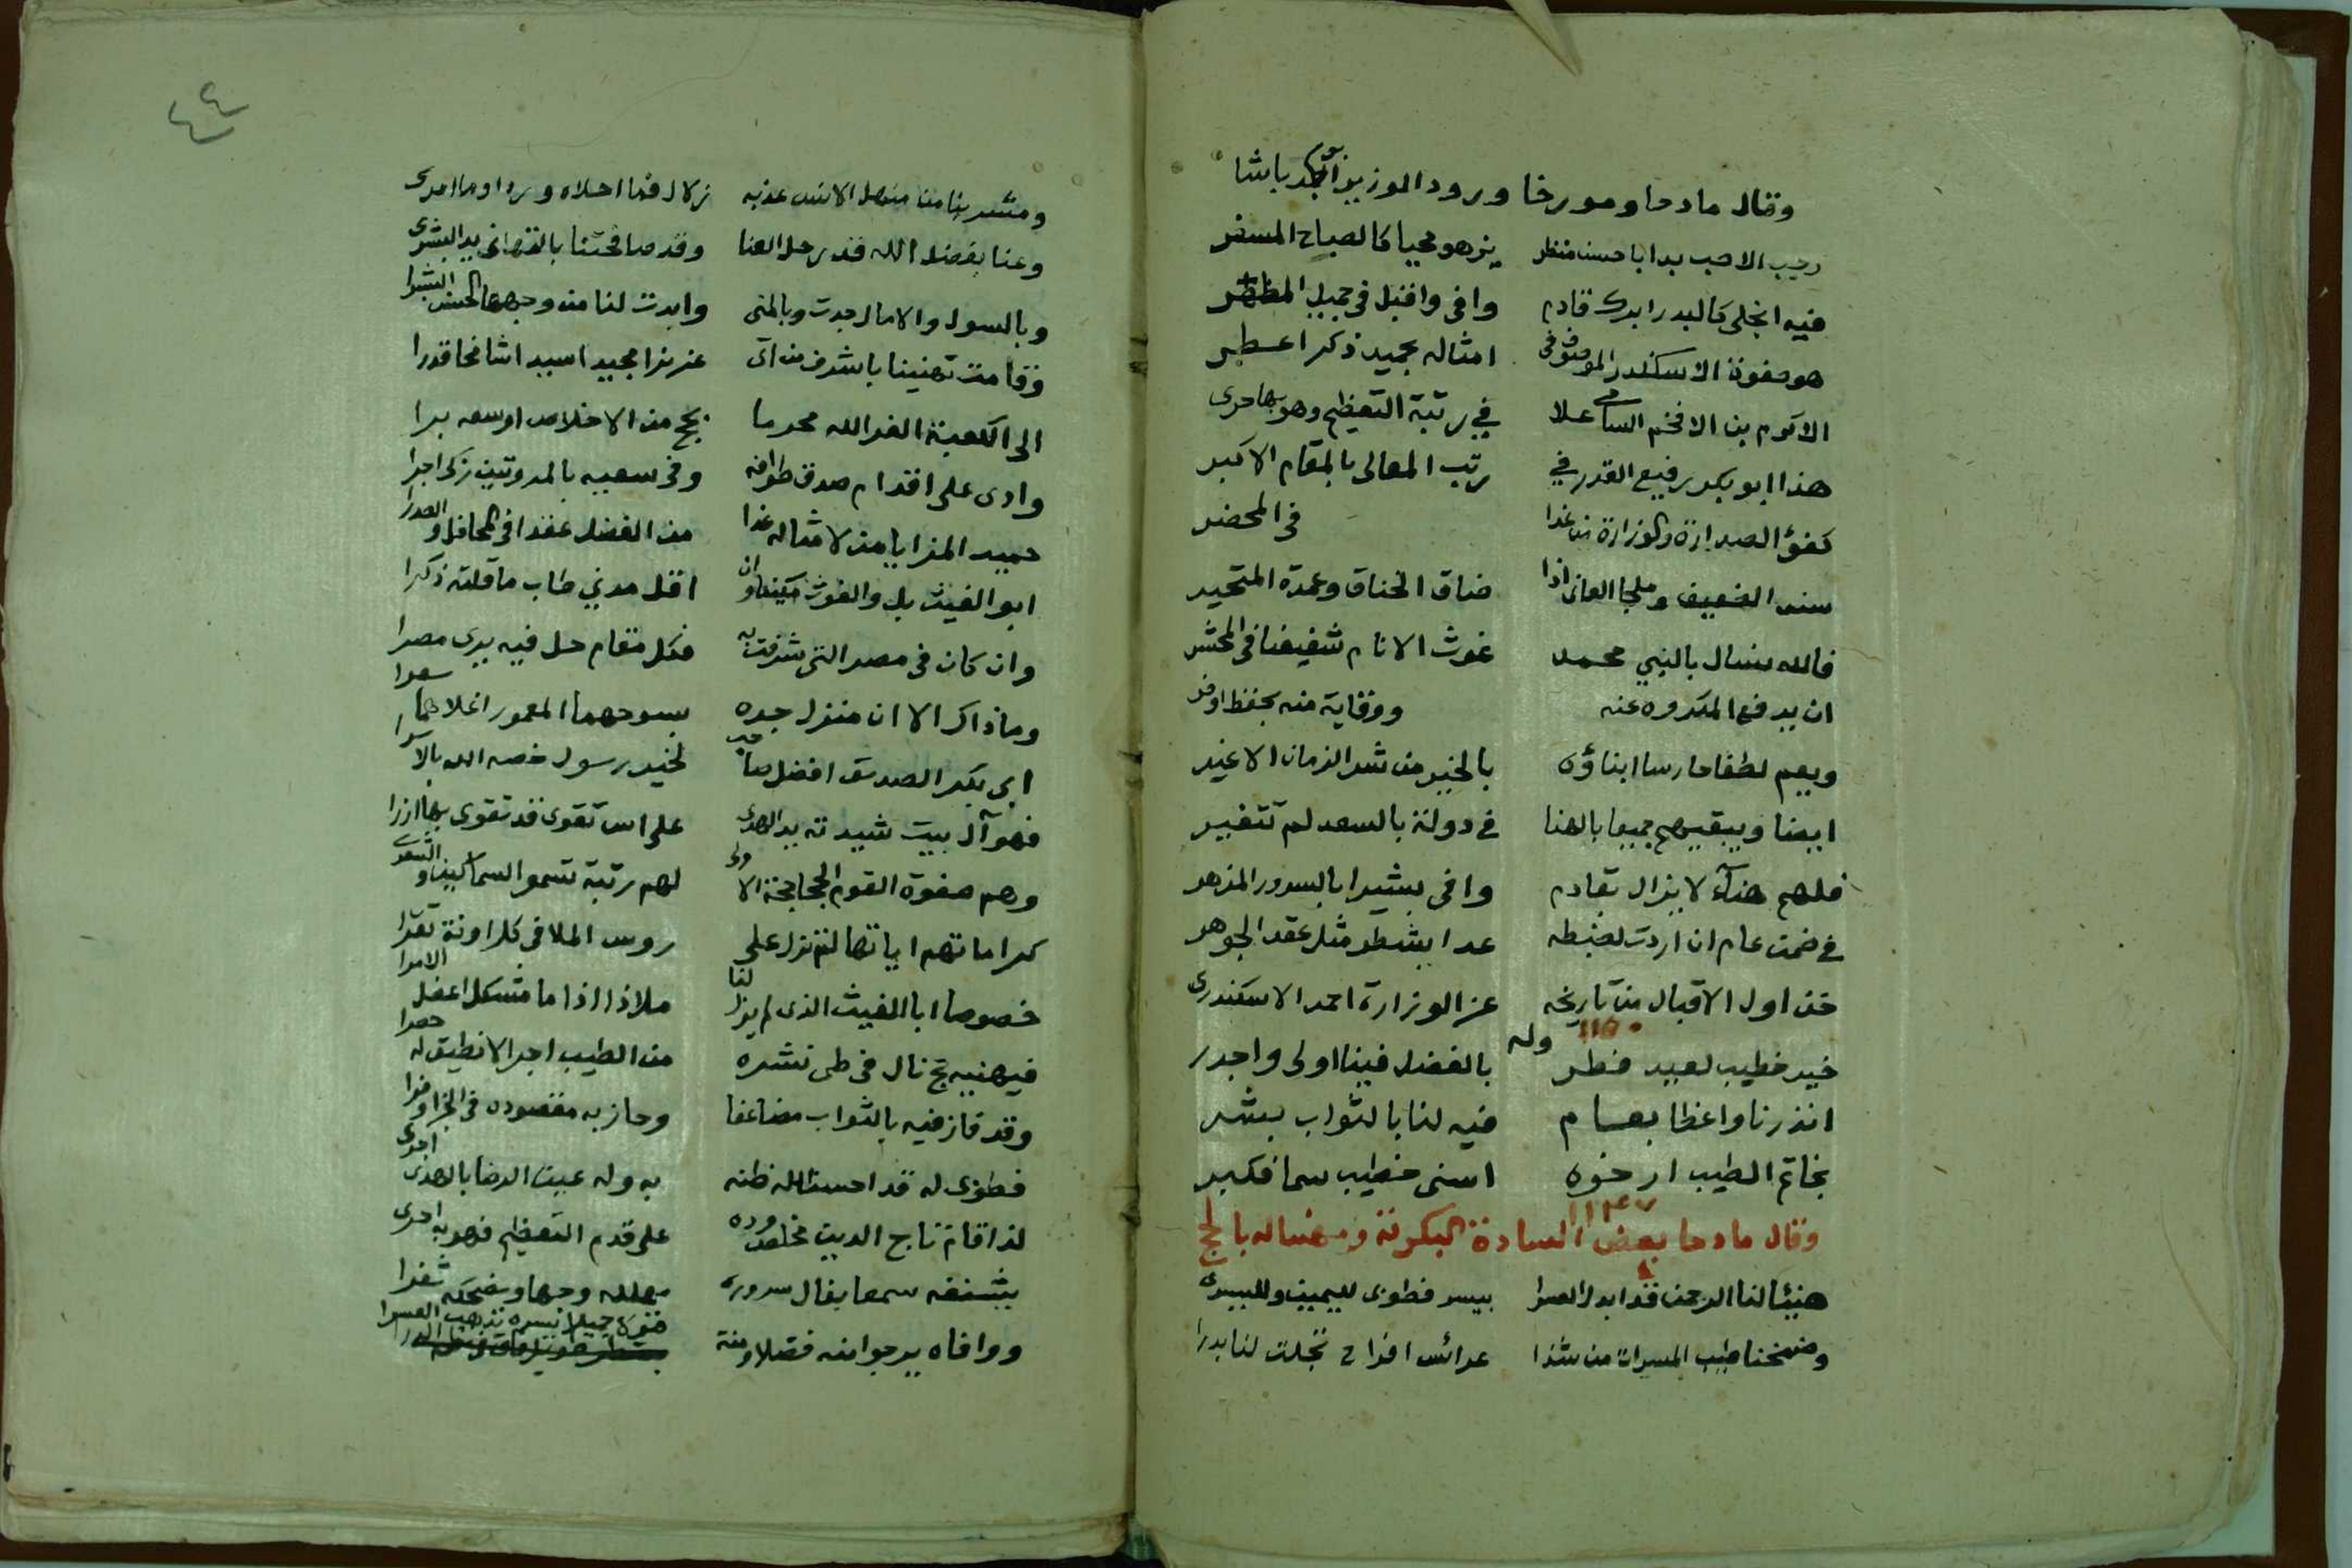 وقال مادحا ومورخا ورود الوزير ابو بكر باشا
رجب الاصب بدا باحسن منظر يزهو محيا كالصباح المسفر
فيه انجلى كالبدر ابرك قادم وافى واقبل في جميل المظهر
هو صفوة الاسكندر الموصوف في امثاله بحميد ذكر اعطر
الاكرم بن الافخم السامي علا في رتبة التعظيم وهو بها حرى
هذا ابو بكر رفيع القدر في رتب المعالى بالمقام الاكبر
كفؤ الصدارة والوزارة من غدا في المحضر
سند الضعيف وملجا العانى اذا ضاق الخناق وعمدة المتحير
فالله نسال بالنبي محمد غوث الانام شفيعنا في المحشر
ان يدفع المكروه عنه ووقاية منه بحفظ اوفر
ويعم لطفا حارسا ابناؤه بالخير من شر الزمان الاغير
ايضا ويبقيهم جميعا بالهنا في دولة بالسعد لم تتغير
فلهم هنآء لا يزال بقادم وافى بشيرا بالسرور المزهر
في ضمن عام ان اردت لضبطه عدا بشطر مثل عقد الجوهر
خذ اول الاقبال من تاريخه عز الوزارة احمد الاسكندرى
١١٥٠ وله
خير خطيب لعيد فطر بالفضل فينا اولى واجدر
انذرنا واعظا بعام فيه لنا بالثواب بشر
بخاتم الطيب ارخوه اسنى خطيب سما فكبر
١١٤٧
وقال مادحا بعض السادة البكرية ومهنيا له بالحج
هنيئا لنا الرحمن قد ابدل العسرا بيسر فطوبى لليمين ولليسرى
وضمخنا طيب المسرات من شذا عرائس افراح تجلت لنا بدرا
٤٤
ومشربنا من منهل الانس عذبه زلال فما احلاه وردا وما امرى
وعنا بفضل الله قد رحل العنا وقد صافحتنا بالتهانى يد البشرى
وبالسول والامال جدت وبالمنى وابدت لنا من وجهها الحسن البشرا
وقامت تهنينا باشرف من اتى عزيزا مجيدا سيدا شامخا قدرا
الى الكعبة الغرالله محرما بحج من الاخلاص اوسعه برا
وادى على اقدام صدق طوافه وفى سعيه بالمروتين زكى اجرا
حميد المزايا من لامثاله غدا من الفضل عقدا فى المحافل والصدرا
ابو الغيث بل والغوث وان اقل مدني طاب ما قلته ذكرا
وان كان في مصر التي شرفت به فكل مقام حل فيه يرى مصرا
وما ذاك الا ان منزل جده بسوحهما المعمور اغلاهما سعرا
ابى بكر الصديق افضل صاحب لخير رسول خصه الله بالاسرا
فهو آل بيت شيدته يد الهدى على اس تقوى قد تقوى بها ازرا
وهم صفوة القوم الجحاجحة الاولى لهم رتبة تسمو السماكين والشعرى
كراماتهم اياتها لم تزل على روس الملا في كل اونة تقرا
خصوصا ابا الغيث الذى لم يزل لنا ملاذا اذا ما مشكل اعضل الامرا
فيهنيه حج نال فى طى نشره من الطيب اجرا لا نطيق له حصرا
وقد فاز فيه بالثواب مضاعفا وحاز به مقصوده في الجزا وفرا
فطوبى له قد احسن الله ظنه به وله عين الرضا بالهدى اجرى
لذا قام تاج الدين مخلص وده على قدم التعظيم فهو به احرى
يشنفه سمعا بفال سروره يهلله وجها ويضحكه ثغرا
ووافاه يرجوا منه فضلا ومنة قبولا جميلا يسره تذهب العسرا